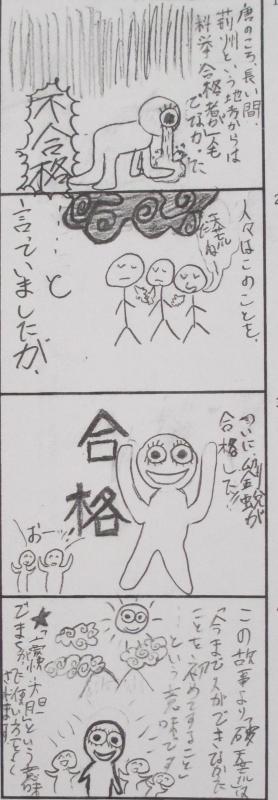 唐のころ、長い間、
荊州という地方からは
科挙合格者が一人も
でなかった
不合格
人々はこのことを、
天荒
だねー
……と
言っていましたが、
ついに、劉蛻が
合格した!!
合格
おーッ!
この故事より「破天荒」は
「今まで人ができなかった
ことを初めてすること」
……という意味です
★「豪快・大胆」という意味
でまちがった使い方をよく
されます。